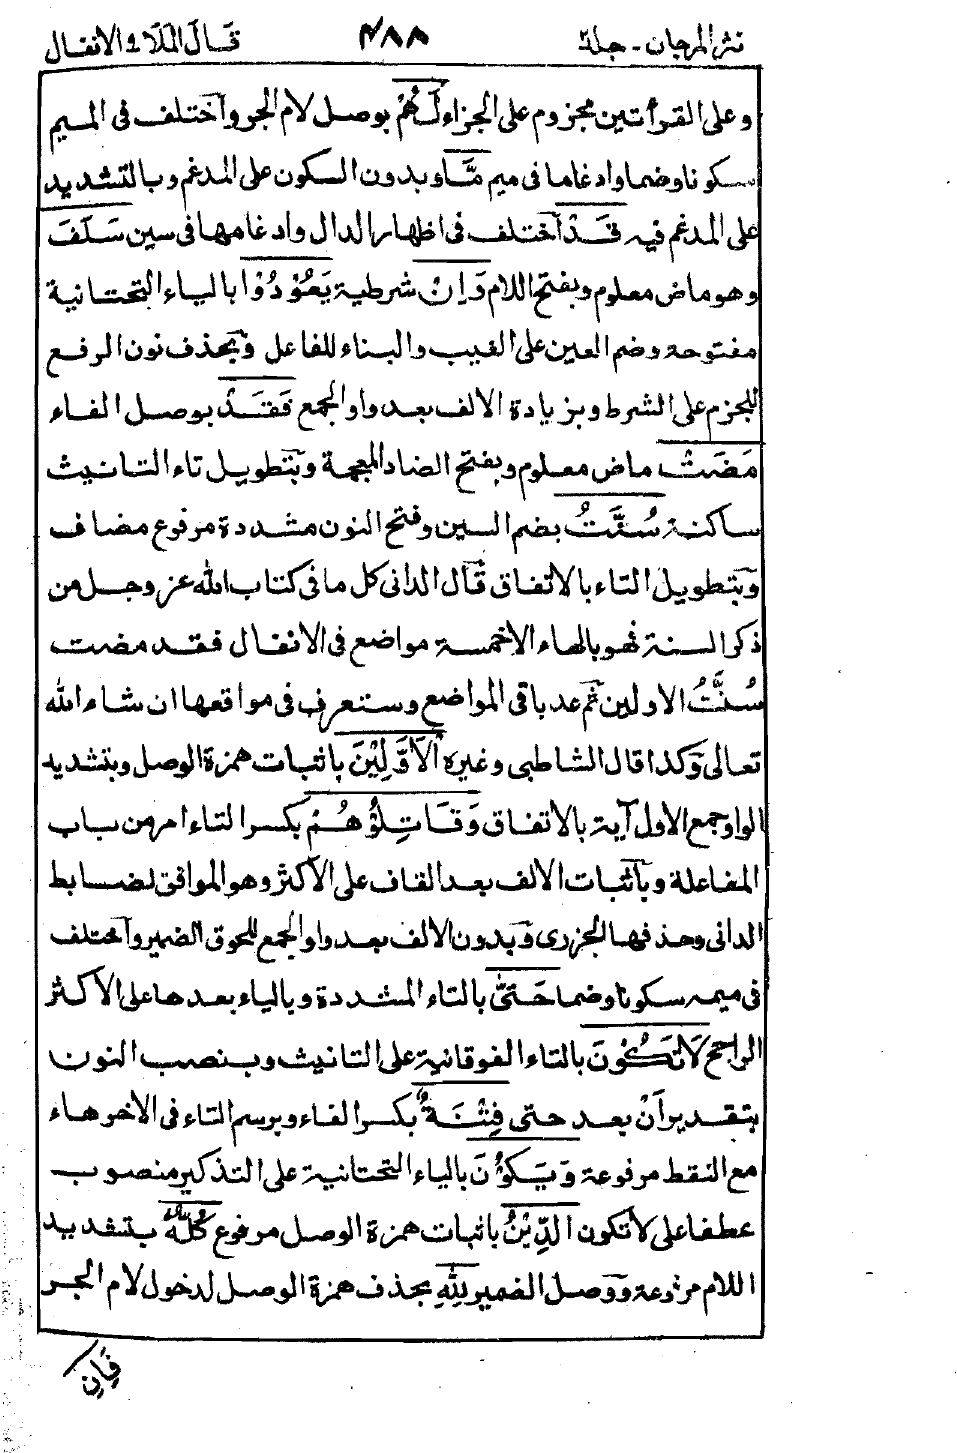 نثر المرجان - جلد ٢ ٤٨٨ قَالَ الْمَلَأُ ٩ الانفال
وعلى القرأتين مجزوم على الجزاء لَهُمْ بوصل لام الجر واختلف فى الميم
سكونا وضما وادغاما فى ميم مَّا وبدون السكون على المدغم وبالتشديد
على المدغم فيه قَدْ اختلف فى اظهار الدال وادغامها فى سين سَلَفَ
وهو ماض معلوم وبفتح اللام وَاِنْ شرطية يَعُوْدُوْا بالياء التحتانية
مفتوحة وضم العين على الغيب والبناء للفاعل وبحذف نون الرفع
للجزم على الشرط وبزيادة الالف بعد واو الجمع فَقَدْ بوصل الفاء
مَضَتْ ماض معلوم وبفتح الضاد المعجمة وبتطويل تاء التانيث
ساكنة سُنَّتُ بضم السين وفتح النون مشددة مرفوع مضاف
وبتطويل التاء بالاتفاق قال الدانى كل ما فى كتاب الله عز وجل من
ذكر السنة فهو بالهاء الا خمسة مواضع فى الانفال فقد مضت
سُنَّتُ الاولين ثم عد باقى المواضع وستعرف فى مواقعها ان شاء الله
تعالى وكذا قال الشاطبى وغيره اْلاَوَّلِيْنَ باثبات همزة الوصل وبتشديد
الواو جمع الاول آية بالاتفاق وَقَاتِلُوْهُمْ بكسر التاء امر من باب
المفاعلة وباثبات الالف بعد القاف على الاكثر وهو الموافق لضابط
الدانى وحذفها الجزرى وبدون الالف بعد واو الجمع للحوق الضمير واختلف
فى ميمه سكونا وضما حَتّٰى بالتاء المشددة وبالياء بعدها على الاكثر
الراجح لَا تَكُوْنَ بالتاء الفوقانية على التانيث وبنصب النون
بتقدير أنْ بعد حتى فِتْنَةٌ بكسر الفاء وبرسم التاء فى الاخر هاء
مع النقط مرفوعة وَيَكُوْنَ بالياء التحتانية على التذكير منصوب
عطفا على لا تكون الدِّيْنُ باثبات همزة الوصل مرفوع كُلُّهٗ بتشديد
اللام مرفوعة ووصل الضمير لِلّٰهِ بحذف همزة الوصل لدخول لام الجر
فَاِنِ